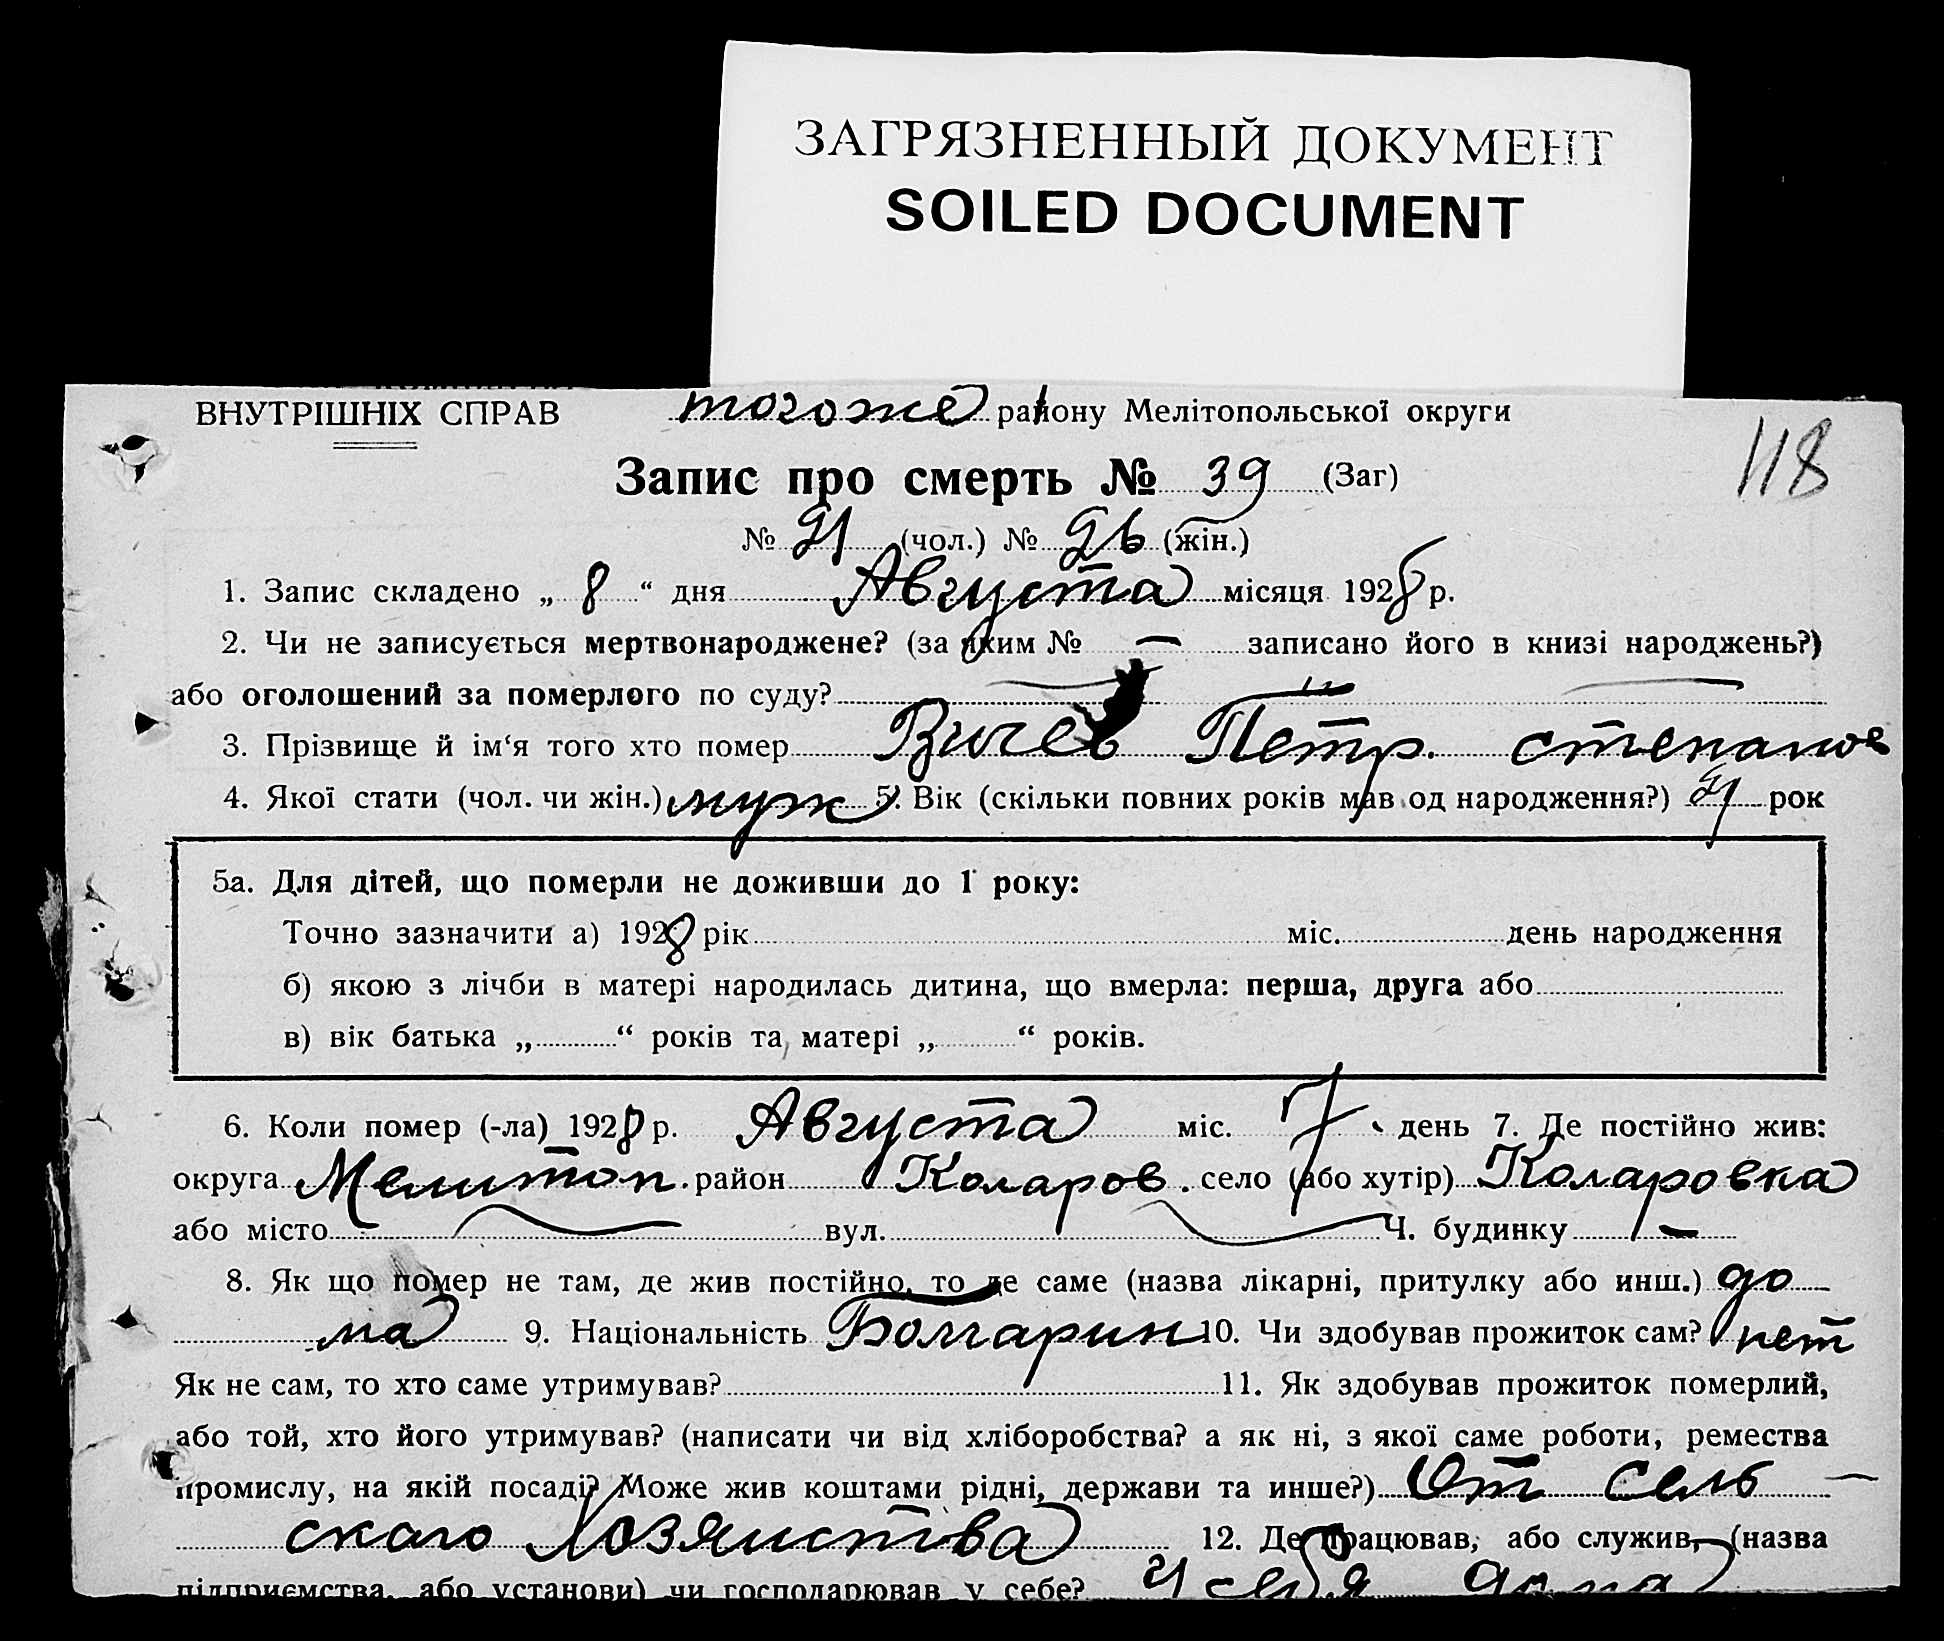 ЗАГРЯЗНЕННЫЙ ДОКУМЕНТ
SOILED DOCUMENT
ВНУТРІШНІХ СПРАВ тогоже району Мелітопольської округи
118
Запис про смерть № 39 (Заг)
№ 21 (чол.) № (жін.)
1. Запис складено „ 8 “ дня Августа місяця 1928 р.
2. Чи не записується мертвонароджене? (за яким № — записано його в книзі народжень?)
або оголошений за померлого по суду?
3. Прізвище й ім‘я того хто помер Вичев Петр. степанов
4. Якої стати (чол. чи жін.) муж 5. Вік (скільки повних років мав од народження?) 21 рок
5а. Для дітей, що померли не доживши до 1 року:
Точно зазначити а) 1928 рік міс. день народження
б) якою з лічби в матері народилась дитина, що вмерла: перша, друга або
в) вік батька „ “ років та матері „ “ років.
6. Коли помер (-ла) 1928 р. Августа міс. 7 день 7. Де постійно жив:
округа Мелитоп. район Коларов. село (або хутір) Коларовка
або місто вул. Ч. будинку —
8. Як що помер не там, де жив постійно, то де саме (назва лікарні, притулку або инш.) до
ма 9. Національність Болгарин 10. Чи здобував прожиток сам? нет
Як не сам, то хто саме утримував? 11. Як здобував прожиток померлий,
або той, хто його утримував? (написати чи від хліборобства? а як ні, з якої саме роботи, ремества
промислу, на якій посаді? Може жив коштами рідні, держави та инше?) От сель —
скаго хозяиства 12. Де працював, або служив, (назва
підприємства, або установи) чи господарював у себе? У себя дома